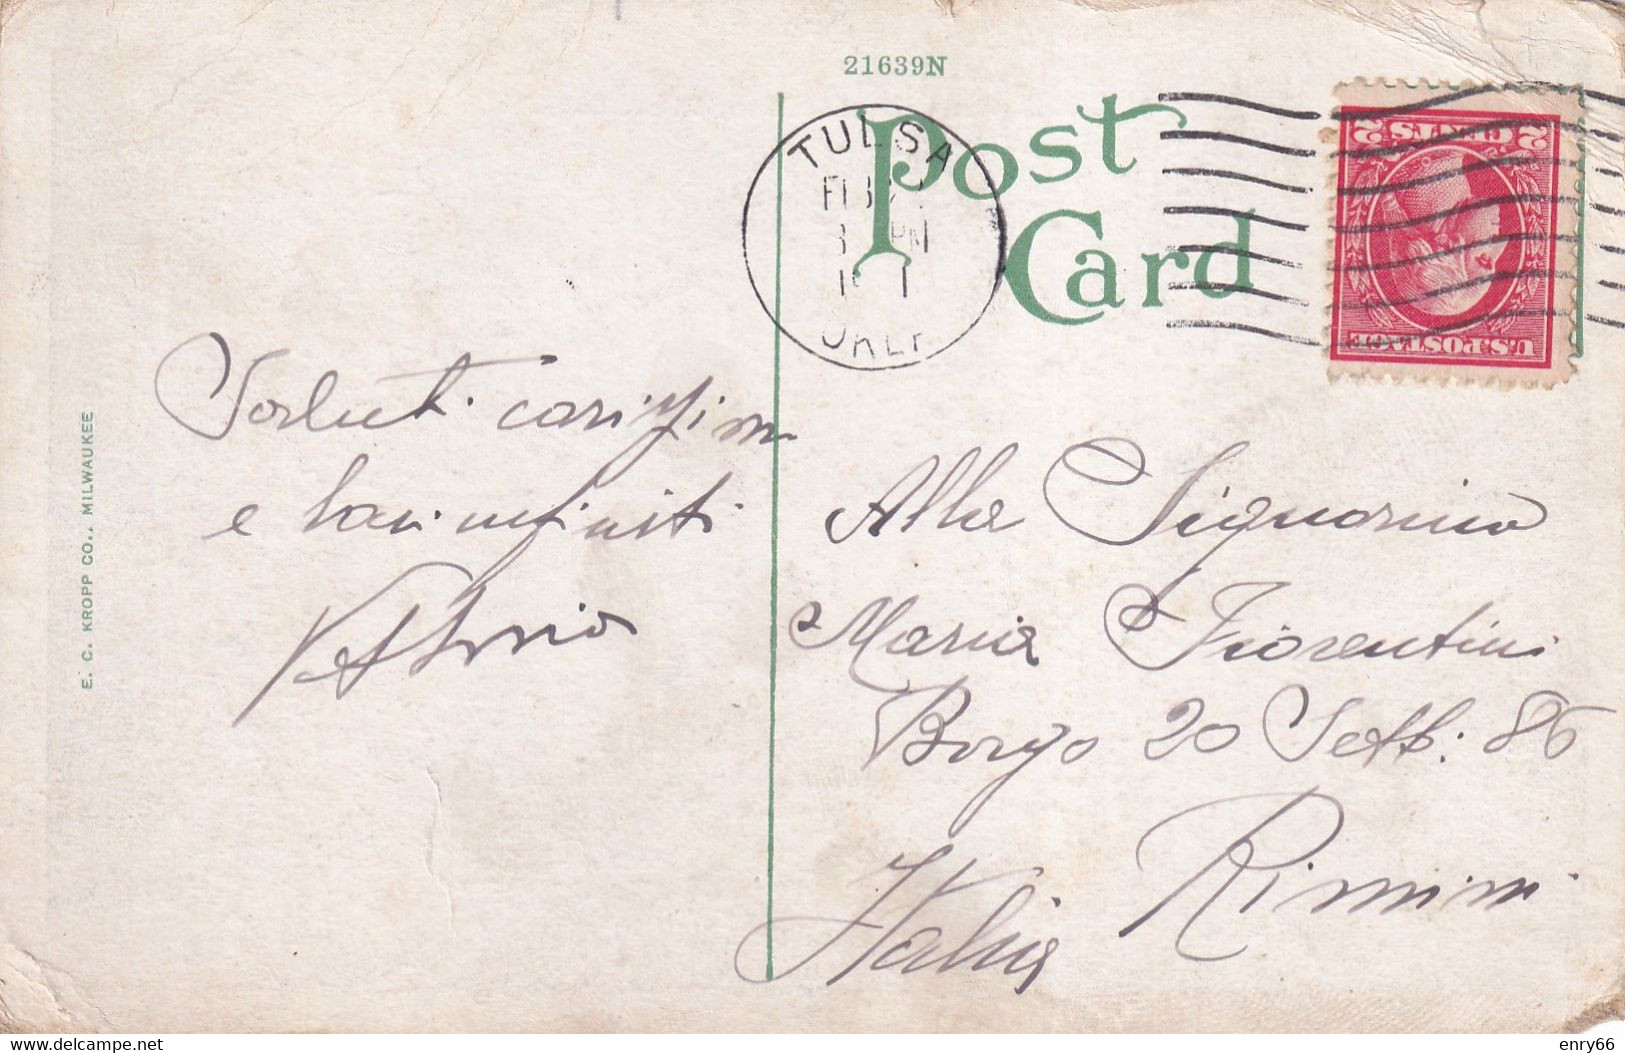 21639N
Post
Card
TULSA
PM
2 CENTS 2
U.S. POSTAGE
Saluti carissimi
e baci infiniti
Alla Signorina
Maria Fiorentini
Borgo 20 Sett: 86
Rimini
Italia
E. C. KROPP CO., MILWAUKEE
www.delcampe.net
enry66